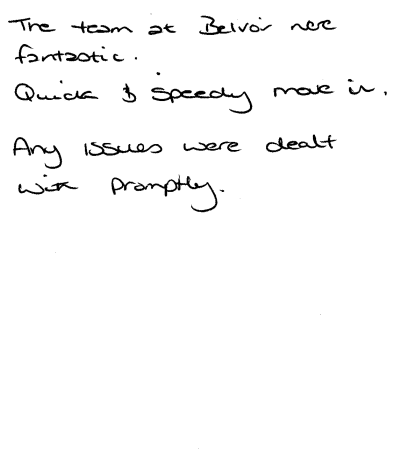 The team at Belvoir were
fantastic.
Quick & speedy move in.
Any issues were dealt
with promptly.